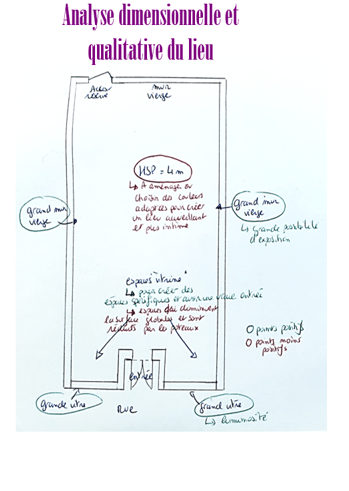 Analyse dimensionnelle et
qualitative du lieu
Accès
réserve
mur
vierge
HSP = 4m
↳ A aménager ou
choisir des couleurs
adaptées pour créer
un lieu accueillant
et plus intime
grand mur
vierge
grand mur
vierge
↳ grande possibilité
d'exposition
espaces "vitrine"
↳ pour créer des
espaces spécifiques et avoir une vraie entrée
↳ espaces qui diminuent
la surface globale et sont
réduits par les poteaux
O points positifs
O points moins
positifs
entrée
grande vitre
RUE
grand vitre
↳ luminosité